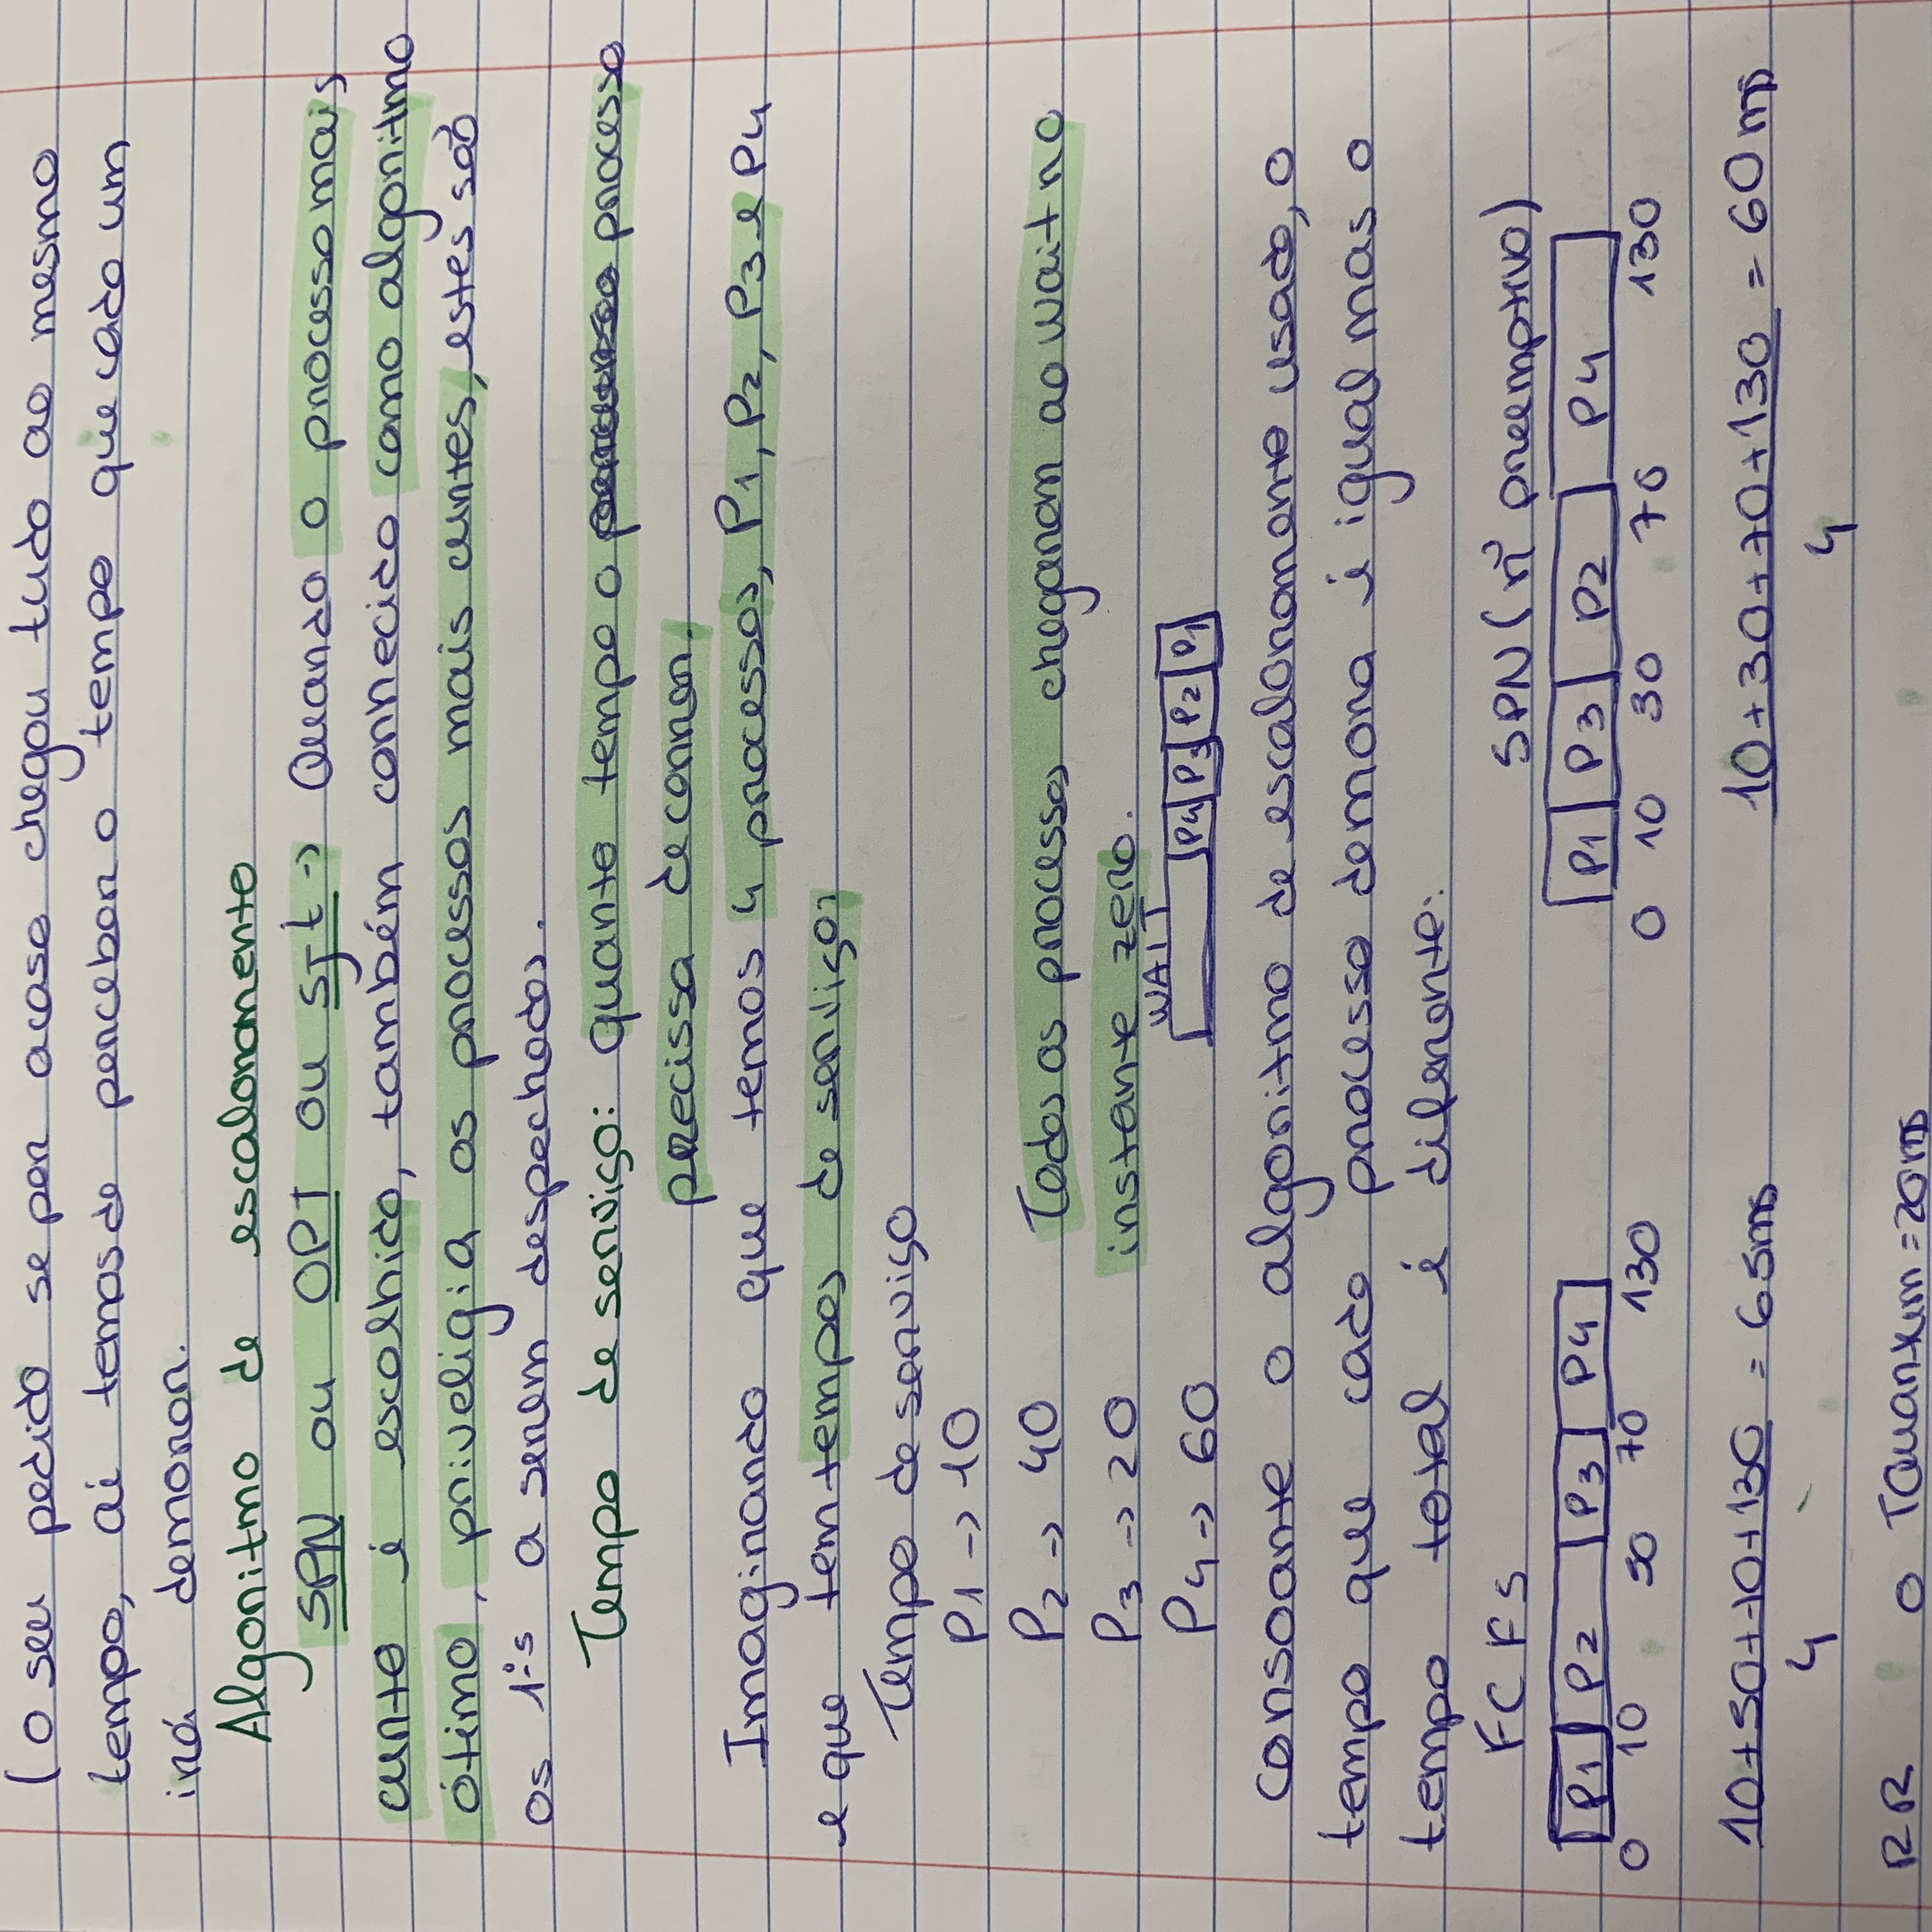 (o seu pedido se por acaso chegou tudo ao mesmo
tempo, aí temos de perceber o tempo que cada um
irá demorar.
Algoritmo de escalonamento
SPN ou OPT ou SJt -> Quando o processo mais
curto é escolhido, também conhecido como algoritmo
ótimo, priveligia os processos mais curtos, estes são
os 1ºs a serem despechados.
Tempo de serviço: quanto tempo o processo
precissa de correr.
Imaginando que temos 4 processos, P1, P2, P3 e P4
e que tem tempos de serviços
Tempo de serviço
P1 -> 10
P2 -> 40 Todos os processos chegaram ao wait no
P3 -> 20 instante zero.
WAIT
P4 -> 60 P4 P3 P2 P1
consoante o algoritmo de escalonamento usado, o
tempo que cada processo demora é igual mas o
tempo total é diferente:
FCFS SPN (ñ preemptivo)
P1 P2 P3 P4 P1 P3 P2 P4
0 10 50 70 130 0 10 30 70 130
10+50+70+130 = 65ms 10+30+70+130 = 60ms
4 4
RR o TQuantum = 20ms